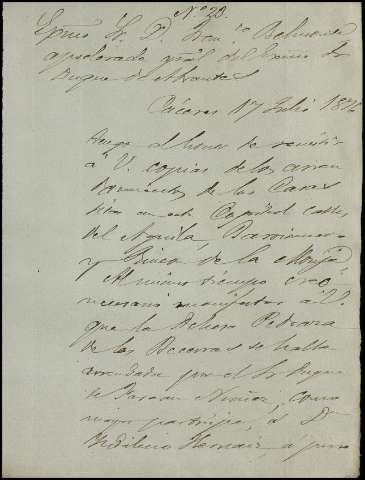 Nº 28.
Exmo Sr. D. Fran.co Belmonte
apoderado gral del Exmo Sr
Duque de Abrantes
Cáceres 17 Julio
Tengo el honor de remitir
á V. copias de los arren
damientos de las Casas
sitas en esta Capital calles
del Aguila, Barrionuevo
y de la Monja
Al mismo tiempo creo
necesario manifestar á V.
que la Dehesa Pedraza
de las Becerras se halla
arrendada por el Sr Duque
de Fernan Nuñez, como
mayor participe, á Dn
á